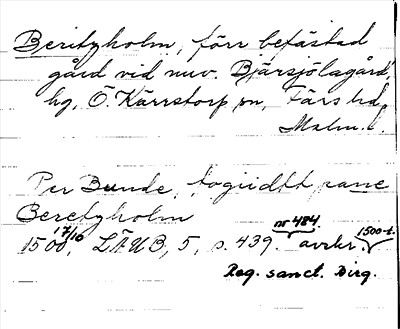 Beritzholm, förr befästad
gård vid nuv. Bjärsjölagård,
hg, Ö. Kärrstorp sn, Färs hd,
Malm. l.
Per Bunde, togiidtt pane
Beretzholm
1500 17/10, LÄUB, 5, s. 439. nr 484. avskr. 1500-t.
Reg. sanct. Birg.